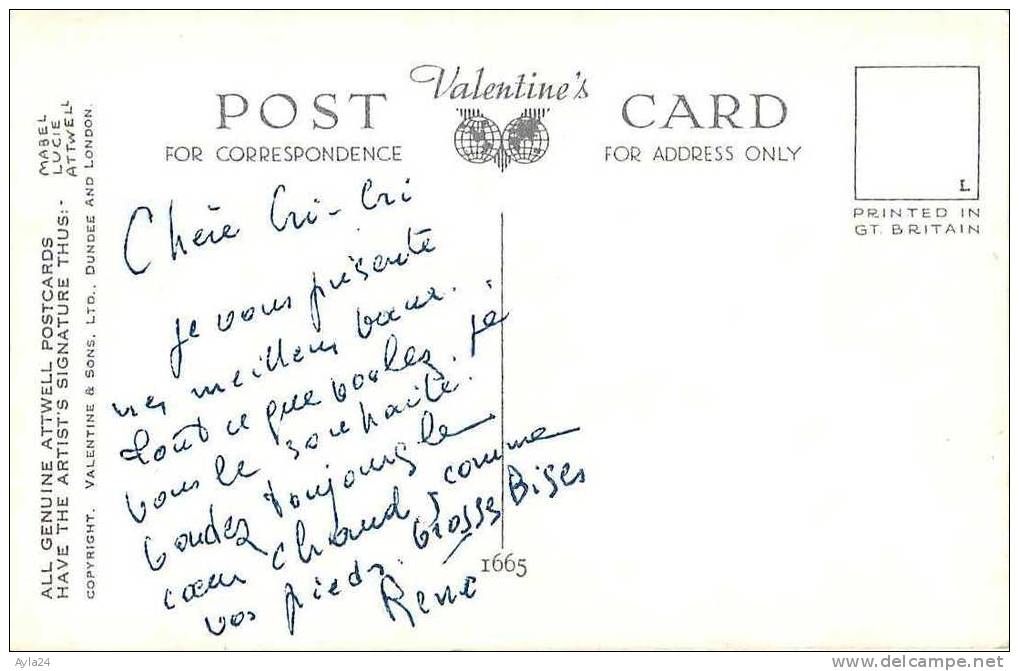 Valentine's
POST CARD
FOR CORRESPONDENCE
FOR ADDRESS ONLY
L
PRINTED IN
GT. BRITAIN
ALL GENUINE ATTWELL POSTCARDS
HAVE THE ARTIST'S SIGNATURE THUS:-
MABEL
LUCIE
ATTWELL
COPYRIGHT. VALENTINE & SONS, LTD., DUNDEE AND LONDON.
Chère Cri-Cri
Je vous présente
mes meilleurs vœux.
tout ce que voulez. Je
vous le souhaite.
toujours le
cœur chaud comme
vos pieds. Grosses Bises
René
1665
Ayla24
www.delcampe.net